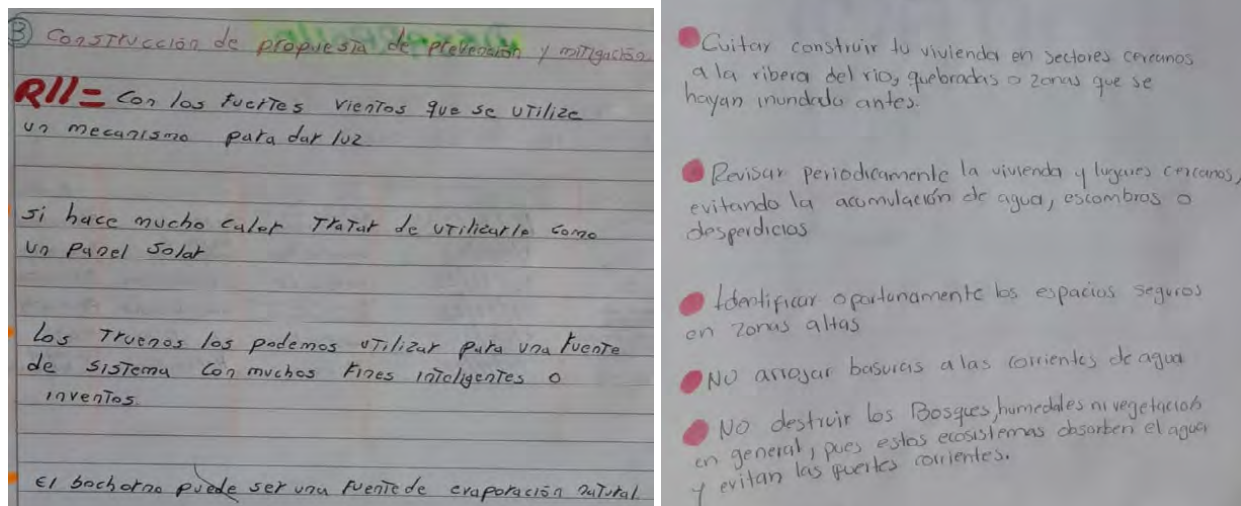 3 Construcción de propuesta de prevención y mitigación
R//= Con los fuertes vientos que se utilize
un mecanismo para dar luz
si hace mucho calor Tratar de utilicarlo como
un Panel Solar
Los Truenos los podemos utilizar para una fuente
de sistema con muchos fines inteligentes o
inventos
El bochorno puede ser una fuente de evaporación natural
Evitar construir tu vivienda en sectores cercanos
a la ribera del rio, quebradas o zonas que se
hayan inundado antes.
Revisar periodicamente la vivienda y lugares cercanos,
evitando la acumulación de agua, escombros o
desperdicios
Identificar oportunamente los espacios seguros
en zonas altas
NO arrojar basuras a las corrientes de agua
NO destruir los Bosques, humedales ni vegetación
en general, pues estos ecosistemas absorben el agua
y evitan las fuertes corrientes.